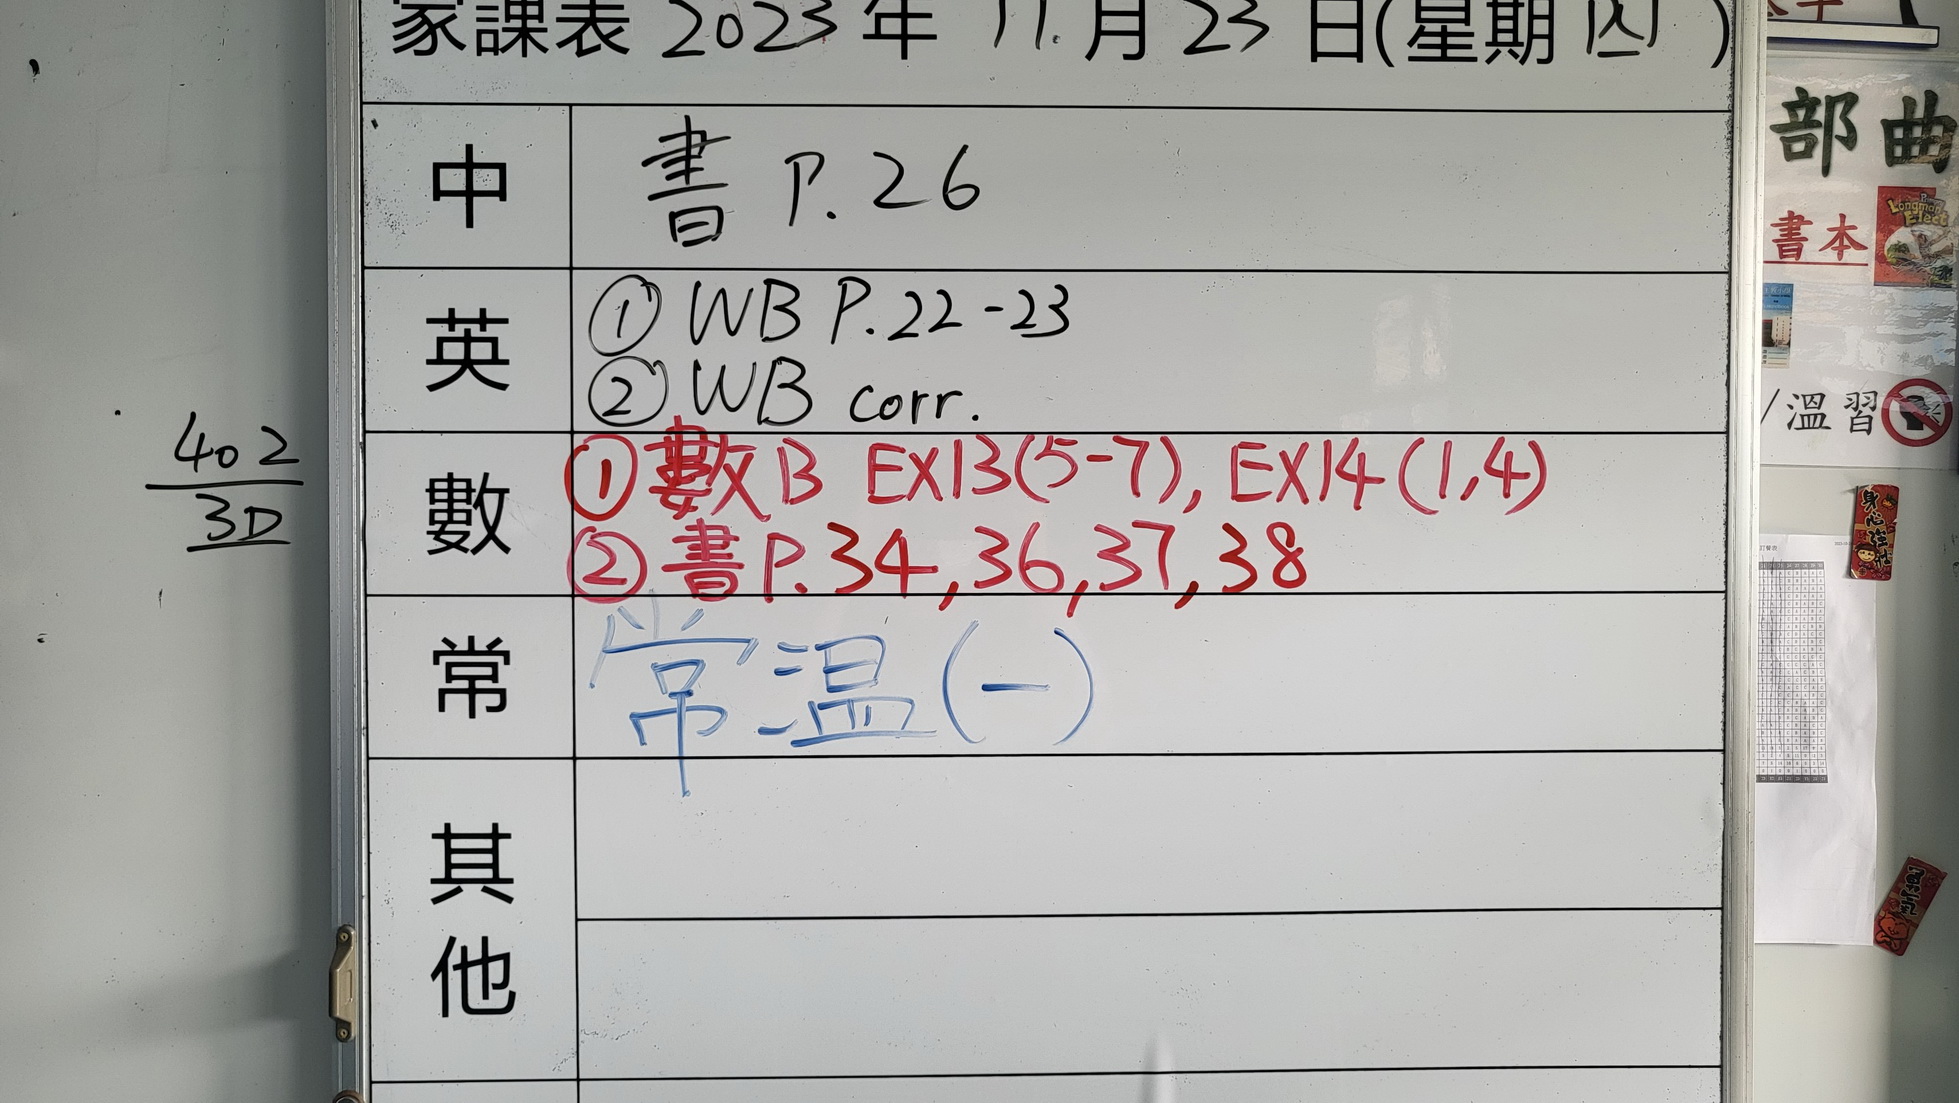 家課表 2023 年 11 月 23 日(星期 四 )
中
書 P.26
英
① WB P.22-23
② WB corr.
數
① 數B EX13(5-7), EX14(1,4)
② 書P.34,36,37,38
常
常温(一)
其他
402
3D
部曲
書本
Longman
Elect
/溫習